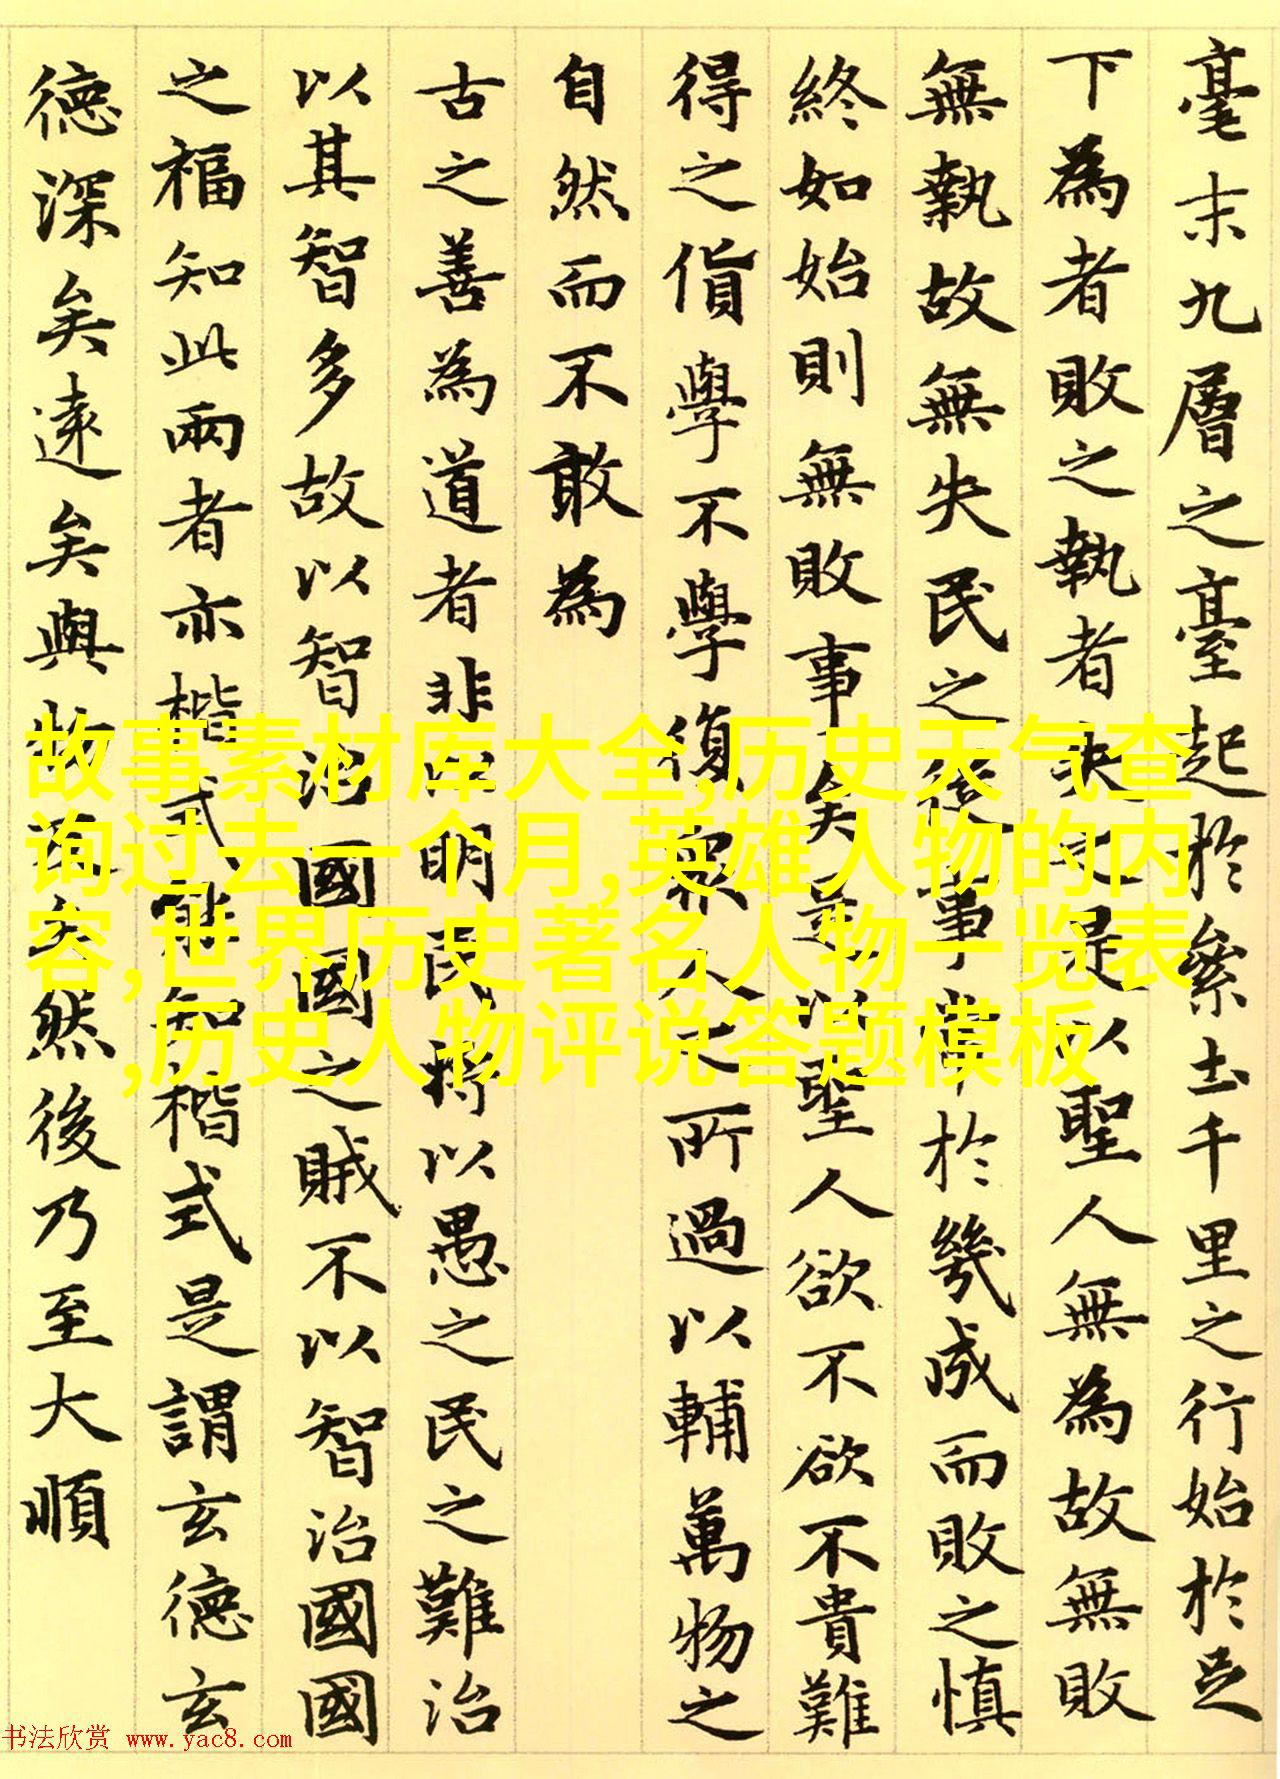 毫末九層之臺起於絫土千里之行始於足
下為者敗之執者失之是以聖人無為故無敗
無執故無失民之從事常於幾成而敗之慎
終如始則無敗事矣是以聖人欲不欲不貴難
得之貨學不學復眾人之所過以輔萬物之
自然而不敢為
古之善為道者非以明民將以愚之民之難治
以其智多故以智治國國之賊不以智治國國
之福知此兩者亦楷式能知楷式是謂玄德玄
德深矣遠矣與物反矣然後乃至大順
故事素材库大全,历史天气查
询过去一个月,英雄人物的内
容,世界历史著名人物一览表
,历史人物评说答题模板
书法欣赏 www.yac8.com